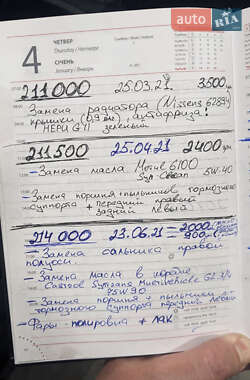 auto RIA
4
ЧЕТВЕР
Thursday / Четверг
СІЧЕНЬ
January / Январь
211000 25.03.21 3500 грн
Замена радиатора (Nissens 62894
крышки (0,9 ), антифриза!
HEPU G11 зеленый
211.500 25.04.21 2400 грн
Замена масла Motul 6100
5W-40
Замена поршня + пыльников тормозного
суппорта + передний правый
задний левый.
214 000 23.06.21 = 2000
900
Замена сальника правой
полуоси.
Замена масла в коробке
Castrol Syntrans Multivehicle
75W90
Замена поршня + пыльники
тормозного суппорта передний левый
Фары - полировка + лак